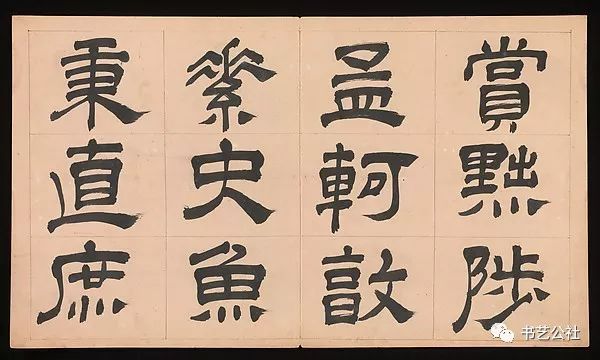 賞黜陟
孟軻敦
素史魚
秉直庶
书艺公社